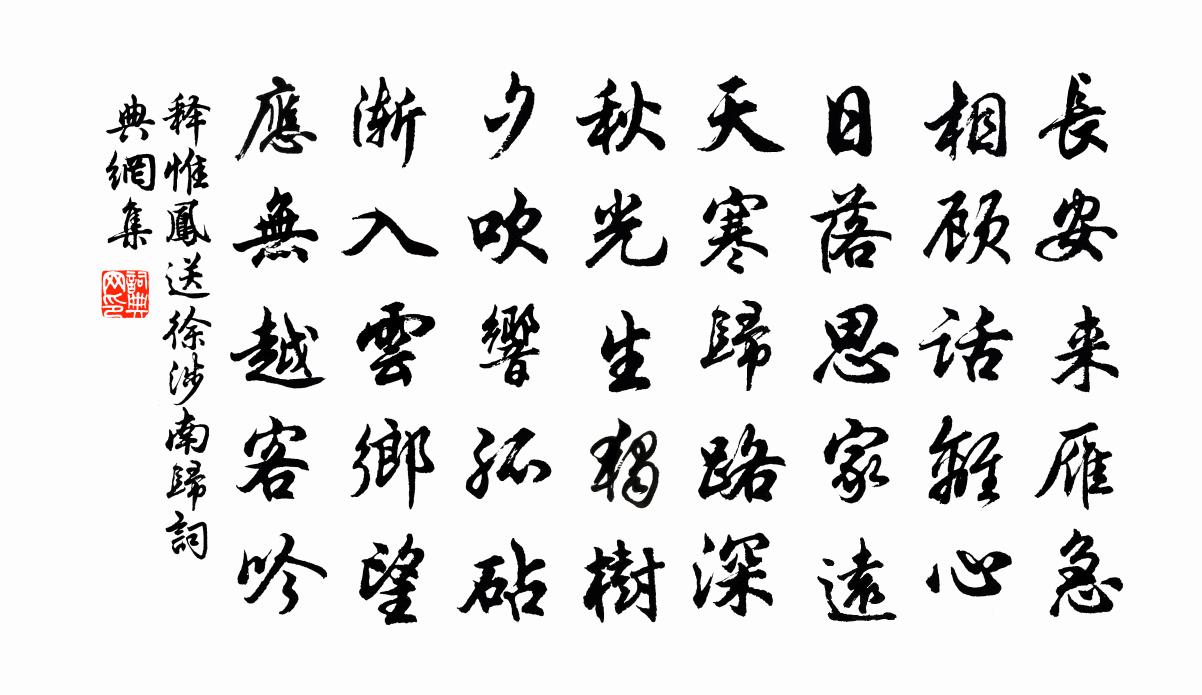 長安来雁急
相顧話離心
日落思家遠
天寒歸路深
秋光生獨樹
夕吹響孤砧
漸入雲鄉望
應無越客吟
释惟鳳送徐涉南歸詞
典網集
詞典
网印